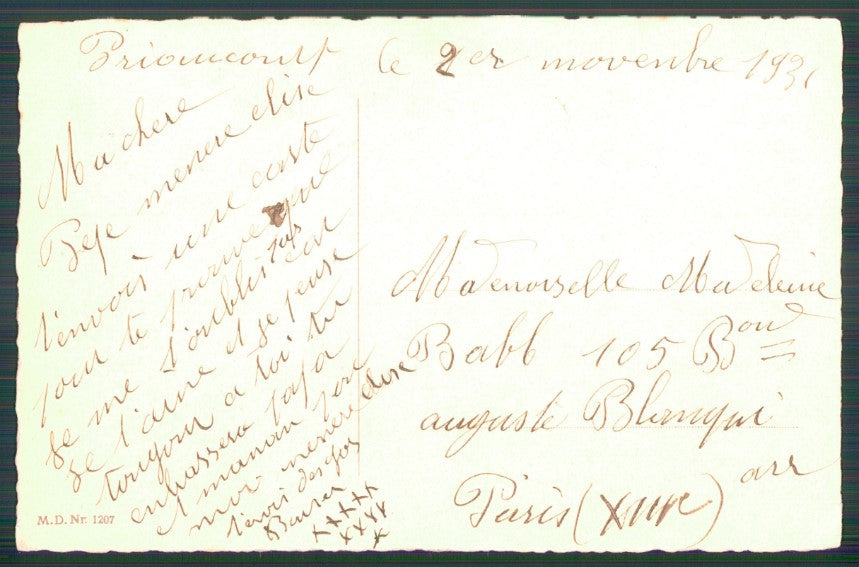 le 2er movenbre 1931
Ma chere
menere elise
t'envois une carte
pour te prouve que
je me t'oublis pas car
je t'aime et je pense
toujour a toi tu
enbassera papa
et maman pour
moi menere elise
t'envoi des gros
Baiser
xxxxx
xxxx
x
Mademoiselle Madeleine
Babb 105 Bou
auguste Blanqui
Paris (XIIIe) arr
M.D. Nr. 1207